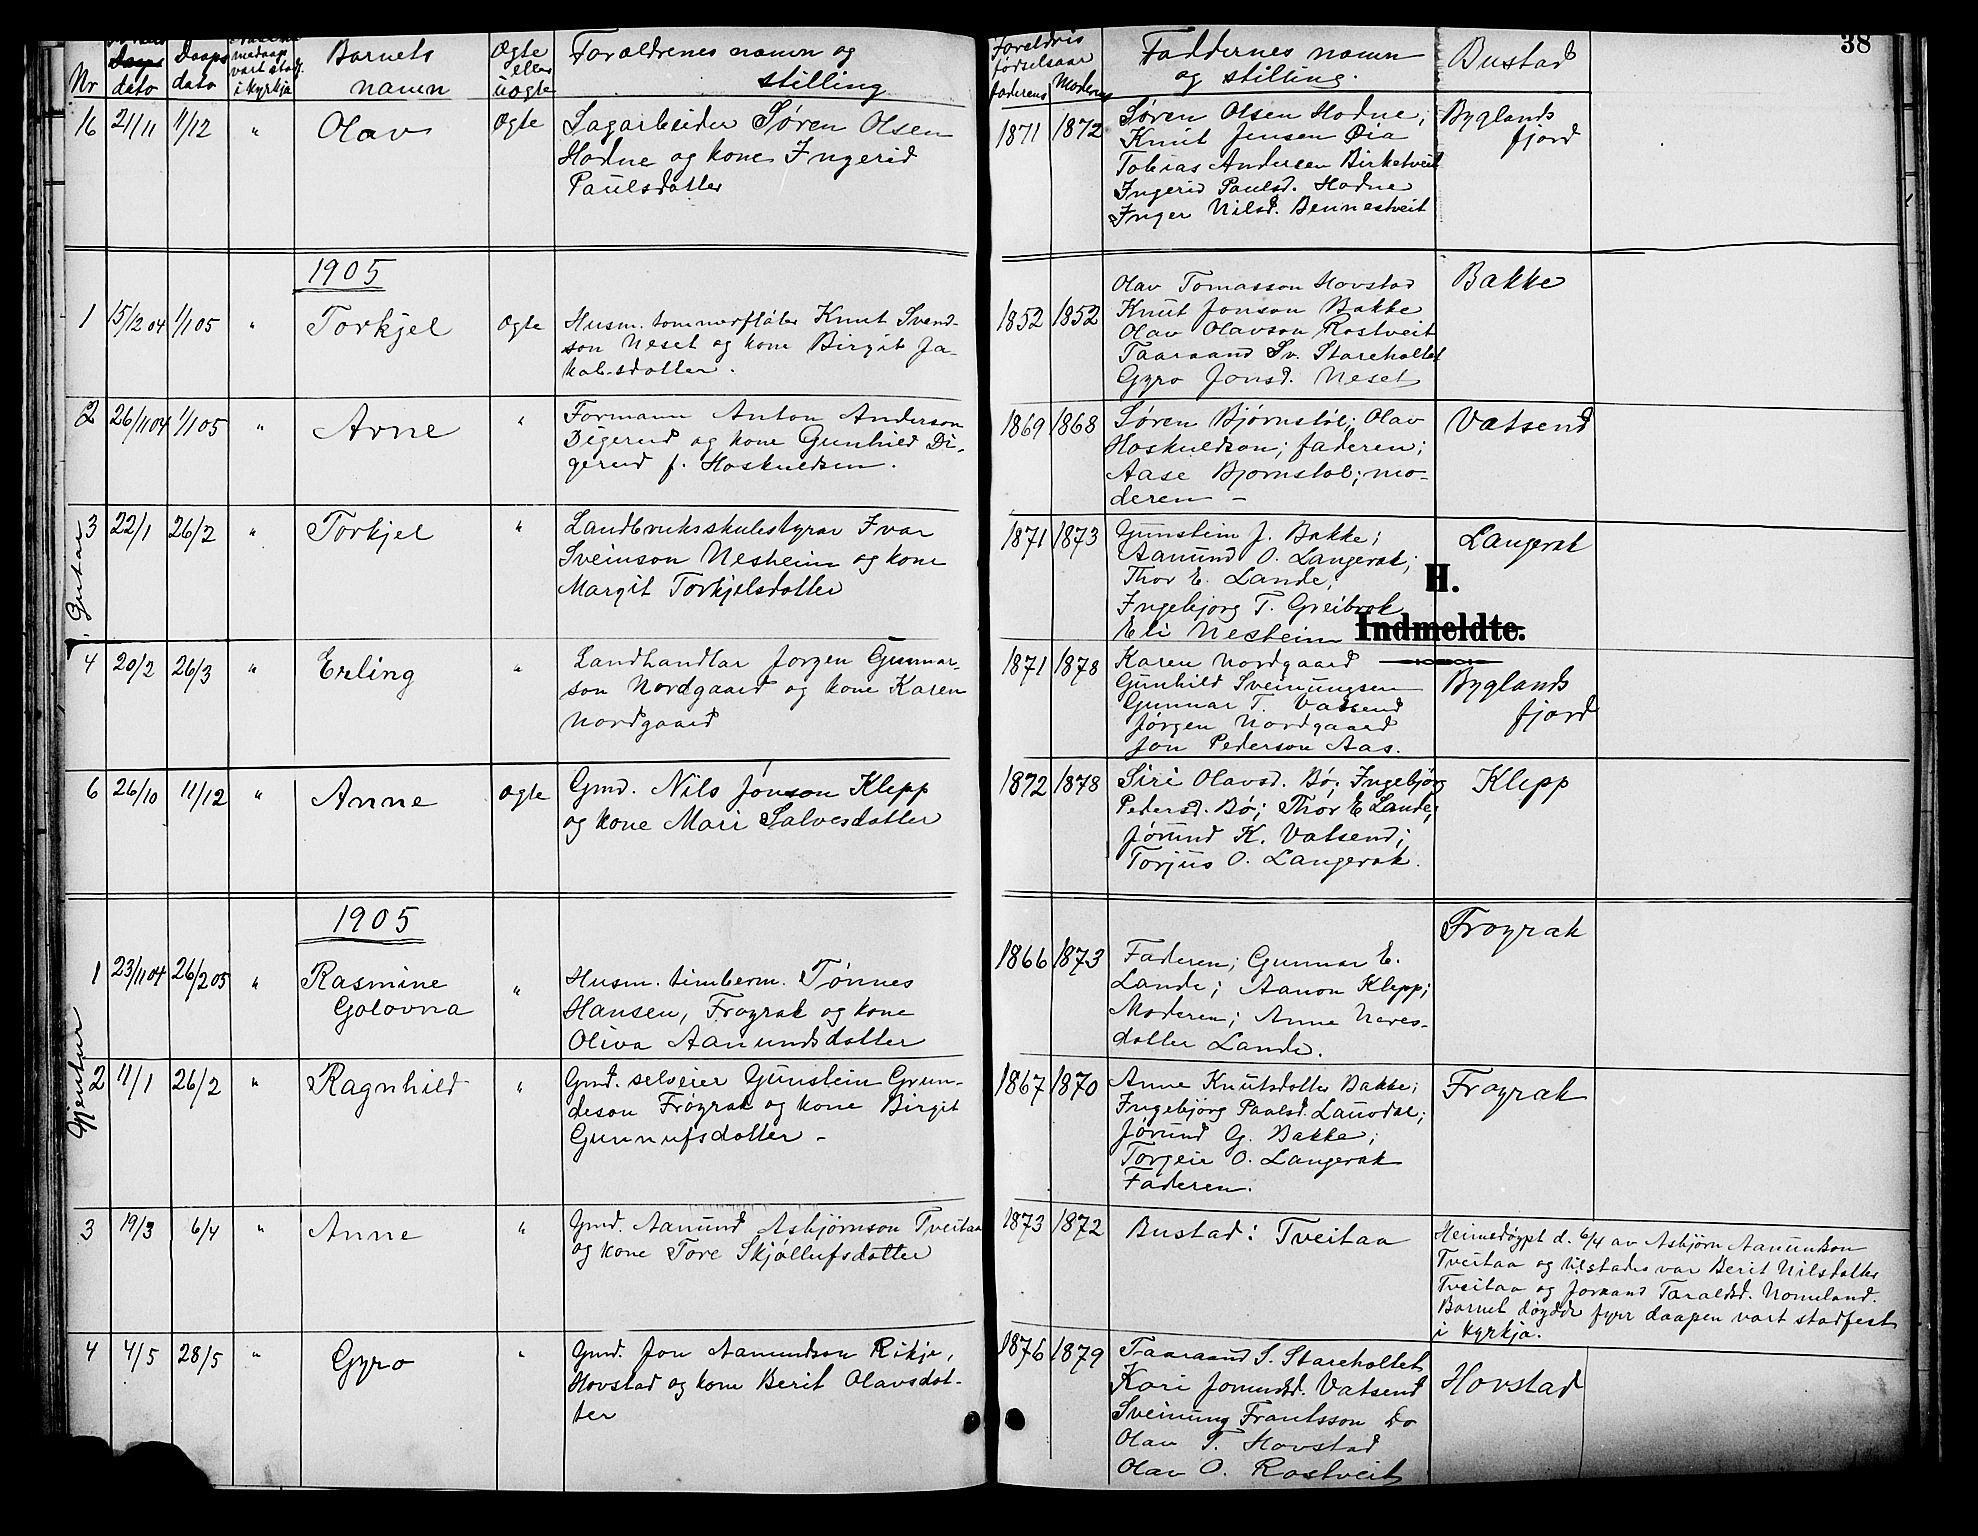 38
Nr
Daaps
dato
Daaps
dato
vart stadf.
i kyrkja
Barnets
namn
Ogte
eller
uogte
Foraldrenes namn og
stilling
Foreldris
fodselsaar
faderens
Moderens
Faddernes namn
og stilling.
Bustad
16
21/11
11/12
"
Olav
Ogte
Sagarbeider Søren Olsen
Hodne og kone Ingerid
Paulsdatter
1871
1872
Søren Olsen Hodne;
Knut Jensen Øia
Tobias Andersen Birketveit
Ingerid Paulsd. Hodne
Inger Nilsd. Bennestveit
Byglands
fjord
1905
Gutar
1
15/2 04
1/1 05
"
Torkjel
Ogte
Husm. tømmerfløter Knut Svend-
son Neset og kone Birgit Ja-
kobsdotter.
1852
1852
Olav Tomasson Hovstad
Knut Jonson Bakke
Olav Olavson Rostveit
Taaraand Sv. Stareholtet
Gyro Jonsd. Neset
Bakke
2
26/11 04
1/1 05
"
Arne
"
Formann Anton Anderson
Digerud og kone Gunhild Di-
gerud f. Hoskuldsen.
1869
1868
Søren Bjørnstøl; Olav
Hoskuldson; faderen;
Aase Bjornstøl; mo-
deren –
Vatsend
3
22/1
26/2
"
Torkjel
"
Landbruksskulestyrar Ivar
Sveinson Nesheim og kone
Margit Torkjelsdotter
1871
1873
Gunstein J. Bakke;
Aamund O. Langerak;
Thor E. Lande;
Ingebjorg T. Greibrok
Eli Nesheim
Langerak
H.
Indmeldte.
4
20/2
26/3
"
Erling
"
Landhandlar Jorgen Gunnar-
son Nordgaard og kone Karen
Nordgaard
1871
1878
Karen Nordgaard
Gunhild Sveinungsen
Gunnar T. Vatsend
Jørgen Nordgaard
Jon Pederson Aas.
Byglands
fjord
6
26/10
11/12
"
Anne
Ogte
Gmd. Nils Jonson Klepp
og kone Mari Salvesdatter
1872
1878
Siri Olavsd. Bø; Ingebjørg
Pedersd. Bø; Thor E Lande;
Jørund K. Vatsend;
Torjus O. Langerak.
Klepp
1905
Gjentur
1
23/11 04
26/2 05
"
Rasmine
Golovna
"
Husm. timberm. Tønnes
Hansen, Froyrak og kone
Oliva Aamundsdatter
1866
1873
Faderen; Gunnar E.
Lande; Aanon Klepp;
Moderen; Anne Neres-
datter Lande.
Froyrak
2
11/1
26/2
"
Ragnhild
"
Gmd. selveier Gunstein Grun-
deson Frøyrak og kone Birgit
Gunnufsdotter –
1867
1870
Anne Knutsdotter Bakke;
Ingebjørg Paalsd. Lauvdal;
Jørund G. Bakke;
Torgeir O. Langerak
Faderen.
Froyrak
3
19/3
6/4
"
Anne
"
Gmd. Aamund Asbjørnson Tveitaa
og kone Tore Skjøllufsdotter
1873
1872
Bustad: Tveitaa
Heimedøypt d. 6/4 av Asbjørn Aamundson
Tveitaa og tilstades var Berit Nilsdotter
Tveitaa og Joraand Taraldsd. Nomeland.
Barnet døydde fyrr daapen vart stadfest
i kyrkja.
4
4/5
28/5
"
Gyro
"
Gmd. Jon Aamundson Rikje,
Hovstad og kone Berit Olavsdot-
ter
1876
1879
Taaraand S. Stareholtet
Kari Jomundsd. Vatsend
Sveinung Frantsson Do
Olav T. Hovstad
Olav O. Rostveit
Hovstad